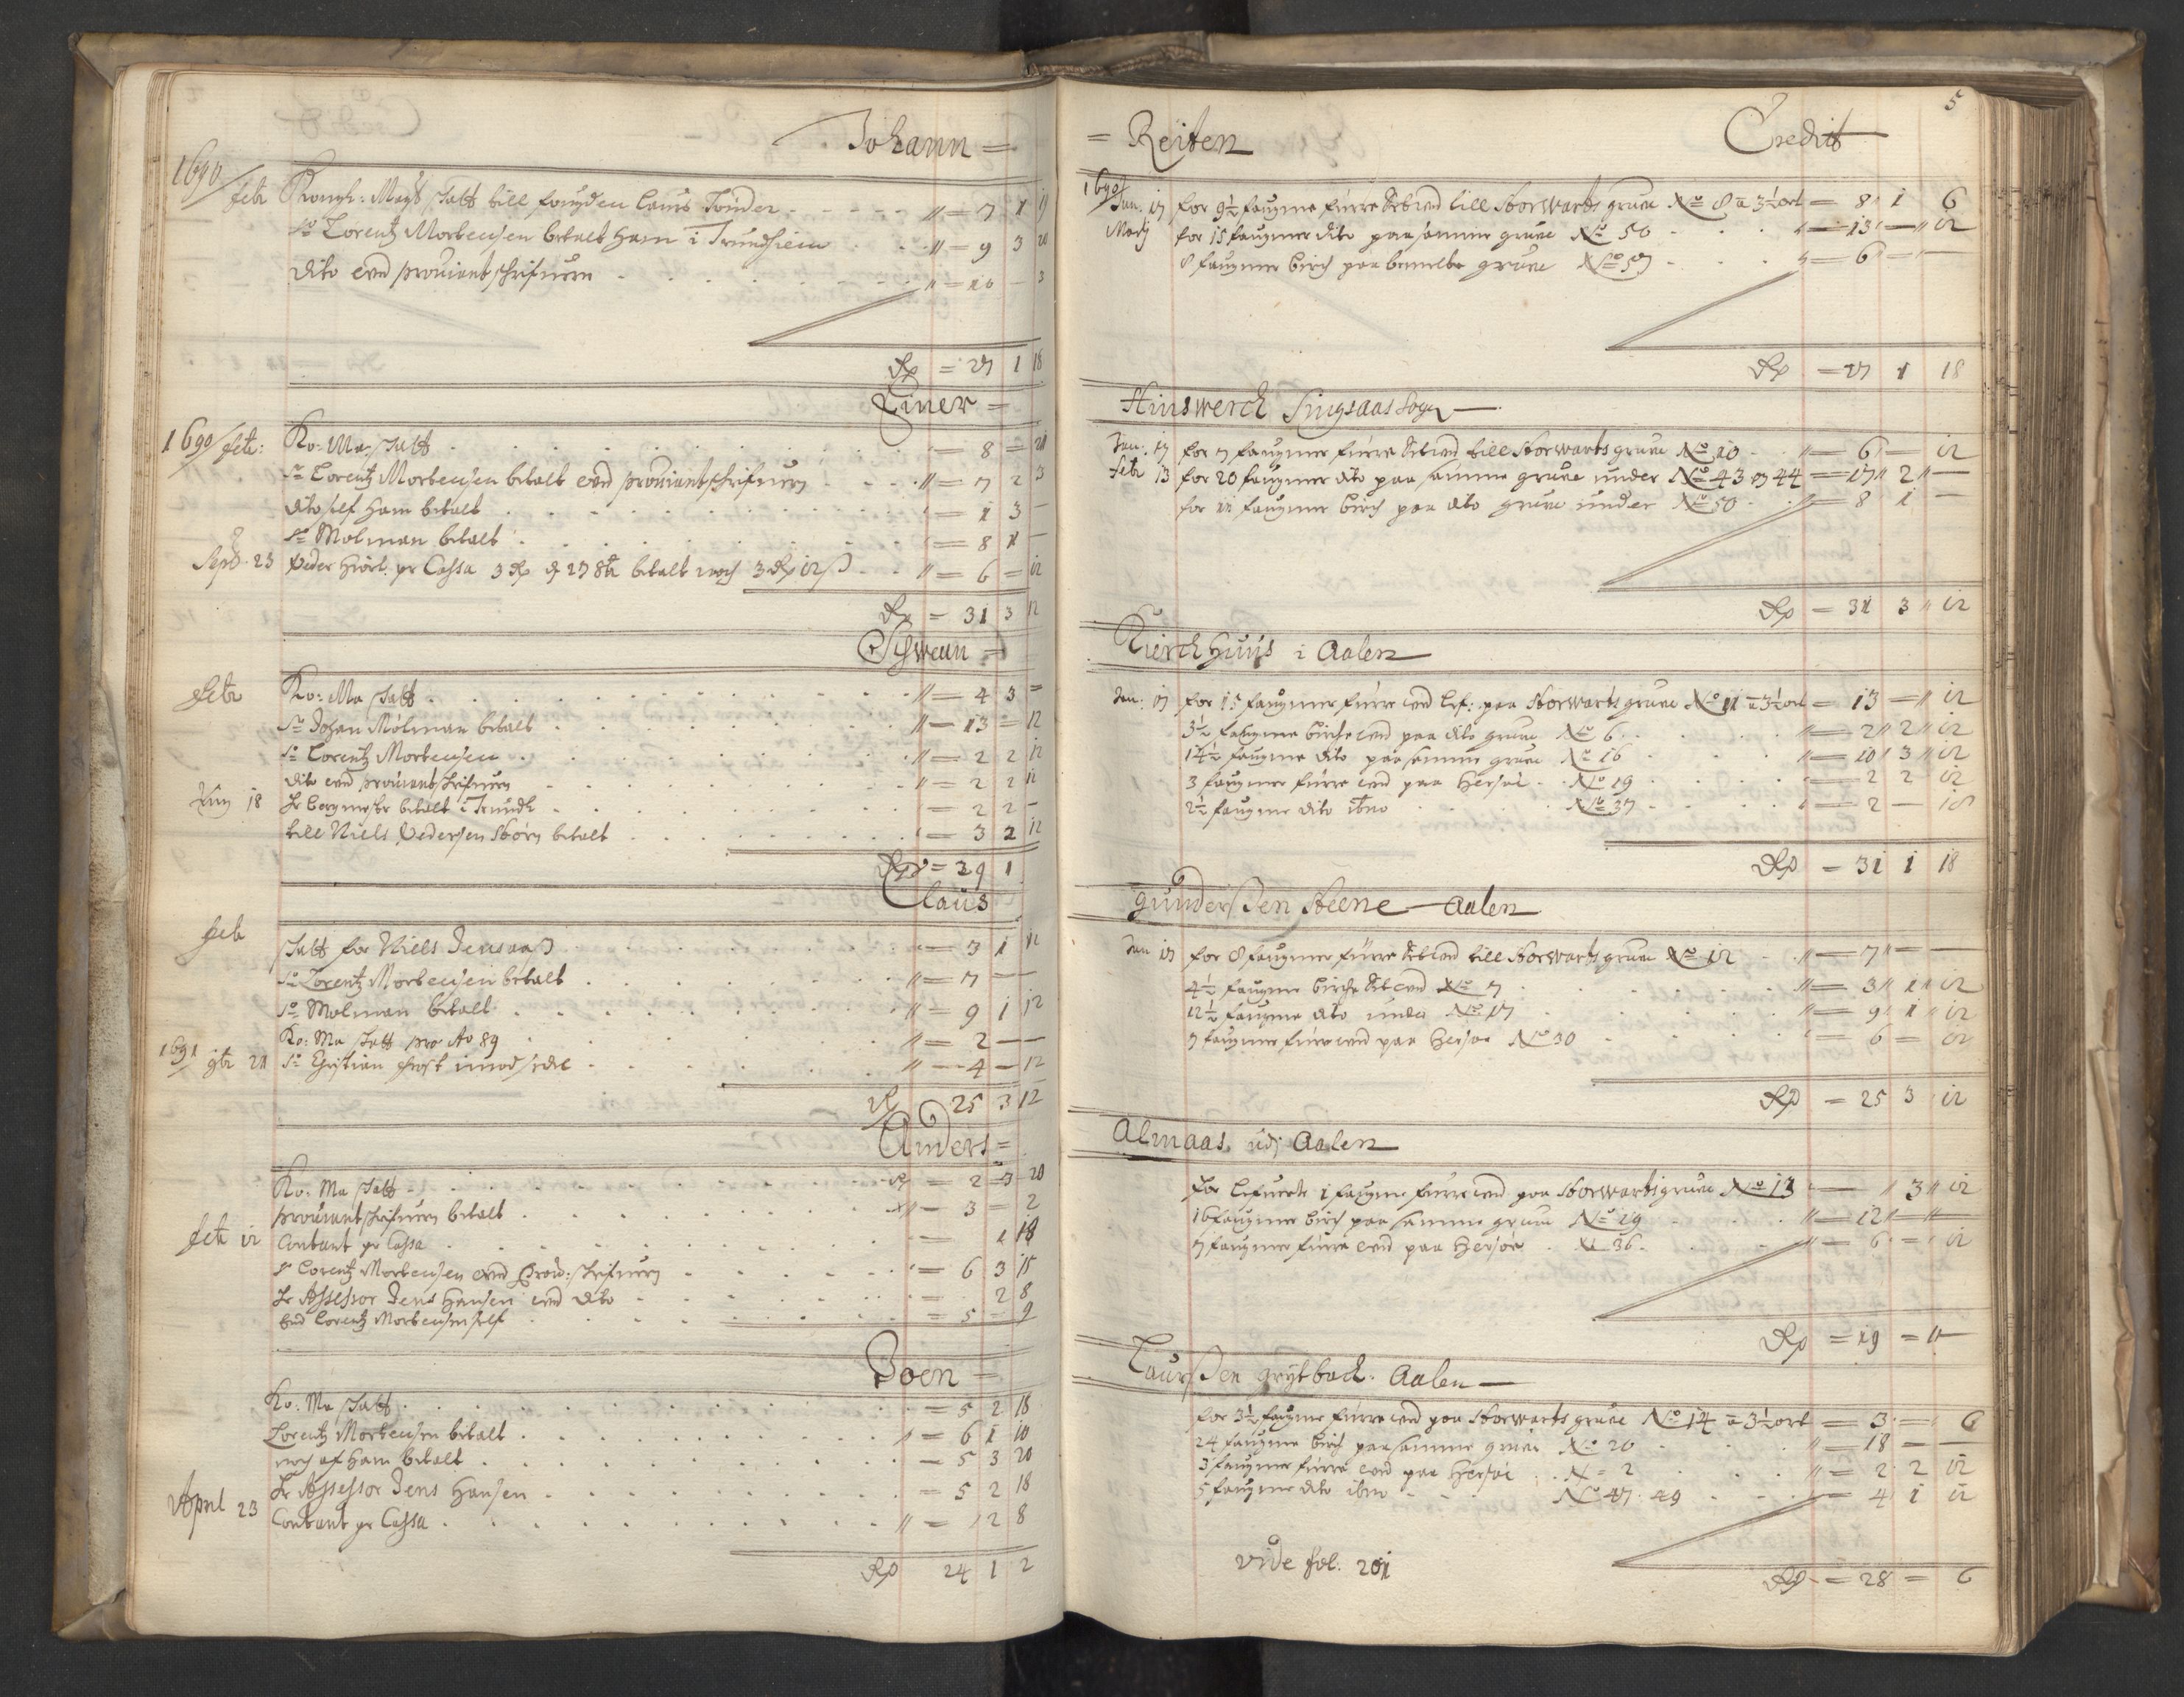 Johann =
1690
feb Kongl: Mayts skatt till fougden Lauis Tønder - - - " = 7 1 19
Sr Lorentz Mortensen betalt ham i Trundhiem " = 9 3 20
Dito ved proviantskrifueren " = 10 - 3
Rd = 27 1 18
Einer =
1690 feb: Ko: Ma: skatt = 8 = 21
Sr Lorentz Mortensen betalt ved proviantskrifuern " = 7 2 3
dito self ham betalt = 1 3 -
Sr Molman betalt = 8 1 -
Septb 23 Peder Hiort pr Cassa 3 Rd betalt noch 3 Rd 12 s " = 6 = 12
Rd = 31 3 12
Schwenn =
Feb Ko: Ma skatt " = 4 3 =
Sr Johan Molman betalt " = 13 = 12
Sr Lorentz Mortensen " = 2 2 12
dito ved proviantskrifuern " = 2 2 12
18 Hr bergmester betalt i Trundh = 2 2 -
till Niels Pedersen Størn betalt = 3 2 12
Rd = 29 1
Claus
feb skatt for Niels Jensen = 3 1 12
Sr Lorentz Mortensen betalt " = 7 -
Sr Molman betalt " = 9 1 12
Ko: Ma skatt pro Ao 89 " = 2 -
1691 9br 21 Sr Christian frost " = 4 - 12
Rd 25 3 12
Anders =
Ko: Ma skatt = 2 = 3 - 20
proviantskrifuern betalt = 3 = 2
feb 12 Contant pr Cassa = 1 18
Sr Lorentz Mortensen ved Prov: skrifuern = 6 3 15
Hr Assessor Jens Hansen ved dito = 2 8
End Lorentz Mortensen self = 5 = 9
Joen =
Ko: Ma skatt = 5 2 18
Lorentz Mortensen betalt " = 6 1 10
noch af ham betalt = 5 3 20
Hr Assessor Jens Hansen = 5 2 18
April 23 Contant pr Cassa " = 2 8
Rd 24 1 2
5
= Reiten Credit
1690
Jan: 17 for 9½ faugne furre Setved till Storwarts gruve No 8 a 3½ ort = 8 1 6
Martj for 15 faugner dito paa samme gruve No 50 = 13 - 12
8 faugner birch paa bemelte gruve No 59 = 6 -
Rd = 27 1 18
Hinswerch Singsaas Sogn
Jan: 17 for 7 faugner furre Setved till Storwarts gruve No 10 " = 6 - 12
Feb 13 for 20 faugner dito paa samme gruve under No 43 og 44 = 17 " 2 " -
for 11 faugner birch paa dito gruve under No 50 = 8 1 -
Rd = 31 3 " 12
Kierch Huus i Aalen
Jan: 17 for 15 faugner furre ved lef: paa Storwarts gruve No 11 a 3½ ort = 13 = " 12
3½ faugne birche ved paa dito gruve No 6 " = 2 " 2 " 12
14½ faugne dito paa samme gruve No 16 " = 10 " 3 " 12
3 faugner furre ved paa Hersøe No 19 = 2 2 12
2½ faugne dito ibno No 37 " = 2 - 18
Rd = 31 1 18
Gunders Sen Steene - Aalen
Jan 17 for 8 faugner furre Setved till Storwarts gruve No 12 " = 7 " -
4½ faugne birche Setved No 7 " = 3 " 1 " 12
12½ faugne dito under No 17 " = 9 " 1 " 12
7 faugner furre ved paa Hersøe No 30 = 6 - 12
Rd = 25 3 12
Almaas udj Aalen
for lefuerte 1 faugne furre ved paa Storwarts gruve No 13 " = " 3 " 12
16 faugner birch paa samme gruve No 19 " = 12 " -
7 faugner furre ved paa Hersøe No 36 " = 6 - 12
Rd = 19 = " -
Laurs Sen grytback. Aalen
for 3½ faugne furre ved paa Storwarts gruve No 14 a 3½ ort = 3 - 6
24 faugne birch paa samme gruve No 20 " = 18 -
3 faugner furre ved paa Hersøe No 2 " = 2 2 12
5 faugne dito ibno No 47 49 = 4 1 12
vide fol. 201
Rd = 28 = 6